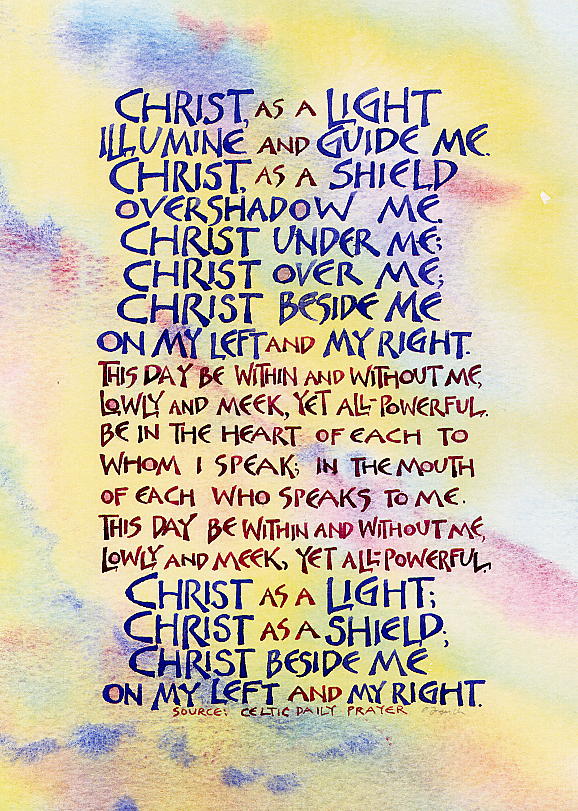 CHRIST, AS A LIGHT
ILLUMINE AND GUIDE ME.
CHRIST, AS A SHIELD
OVERSHADOW ME.
CHRIST UNDER ME;
CHRIST OVER ME;
CHRIST BESIDE ME
ON MY LEFT AND MY RIGHT.
THIS DAY BE WITHIN AND WITHOUT ME,
LOWLY AND MEEK, YET ALL-POWERFUL.
BE IN THE HEART OF EACH TO
WHOM I SPEAK; IN THE MOUTH
OF EACH WHO SPEAKS TO ME.
THIS DAY BE WITHIN AND WITHOUT ME,
LOWLY AND MEEK, YET ALL-POWERFUL.
CHRIST AS A LIGHT;
CHRIST AS A SHIELD;
CHRIST BESIDE ME
ON MY LEFT AND MY RIGHT.
SOURCE: CELTIC DAILY PRAYER